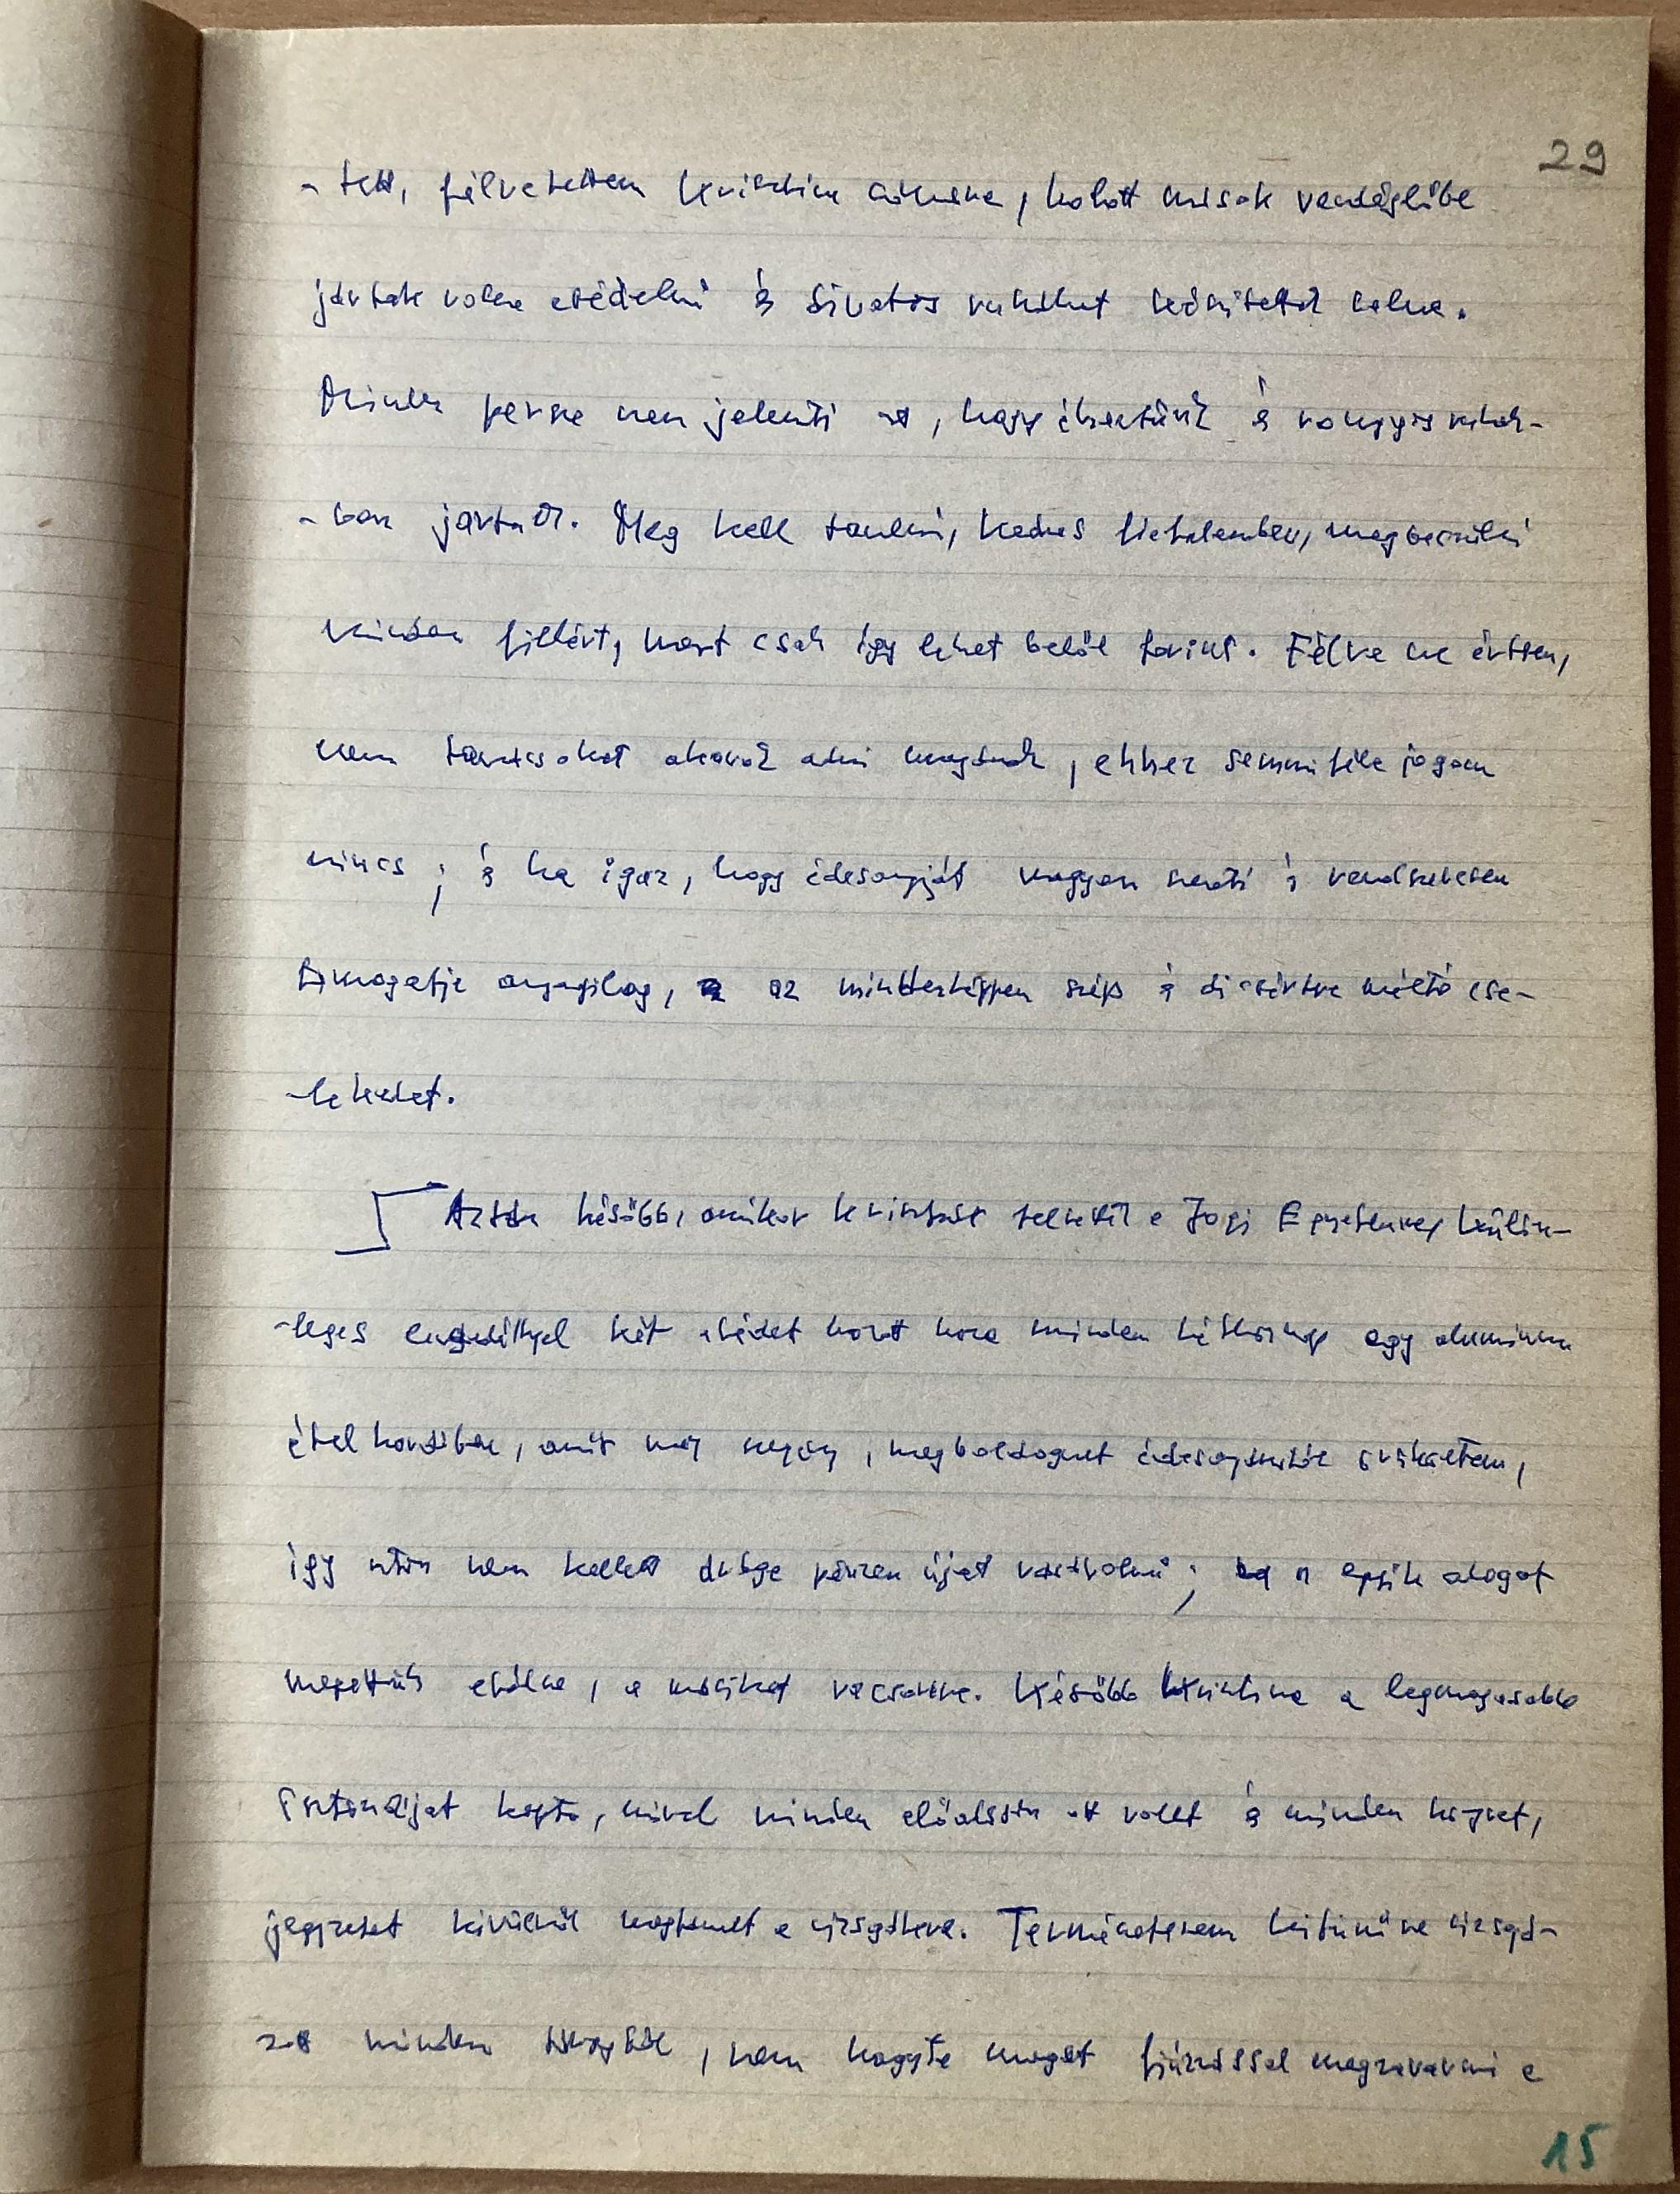 29
-tett, félretettem Krisztina számára, holott mások vendéglőbe
jártak volna ebédelni és divatos ruhákat csináltattak volna.
Mindez persze nem jelenti azt, hogy éheztünk és rongyos ruhák-
-ban jártunk. Meg kell tanulni, kedves fiatalember, megbecsülni
minden fillért, mert csak így lehet belőle forint. Félre ne értsen,
nem tanácsokat akarok adni magának, ehhez semmiféle jogom
nincs; és ha igaz, hogy édesanyját nagyon szereti és rendszeresen
támogatja anyagilag, az mindenképpen szép és dicséretre méltó cse-
-lekedet.
Aztán később, amikor Krisztinát felvették a Jogi Egyetemre, külön-
-leges engedéllyel két ebédet hozott haza minden hétköznap egy alumínium
ételhordóban, amit még szegény, megboldogult édesanyámtól örököltem,
így aztán nem kellett drága pénzen újat vásárolni; az egyik adagot
megettük ebédre, a másikat vacsorára. Később Krisztina a legmagasabb
ösztöndíjat kapta, mivel minden előadáson ott volt és minden könyvet,
jegyzetet kívülről megtanult a vizsgákra. Természetesen kitűnőre vizsgá-
zott minden tárgyból, nem hagyta magát fiúzással megzavarni a
15